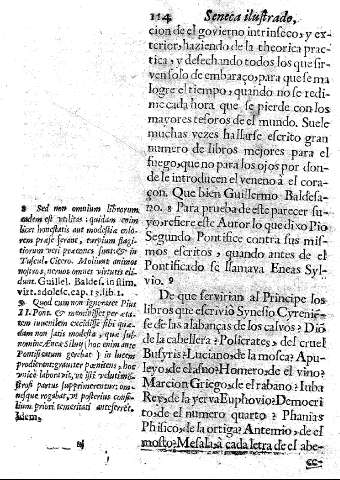 114 Seneca ilustrado,
cion de el govierno intrinseco, y ex-
terior, haziendo de la theorica prac-
tica, y desechando todos los que sir-
ven solo de embaraço, para que se ma
logre el tiempo, quando no se redi-
me cada hora que se pierde con los
mayores tesoros de el mundo. Suele
muchas vezes hallarse escrito gran
numero de libros mejores para el
fuego, que no para los ojos por don-
de le introducen el veneno à el cora-
çon. Que bien Guillermo Baldesa-
no. 8 Para prueba de este parecer su-
yo, refiere este Autor lo que dixo Pio
Segundo Pontifice contra sus mis-
mos escritos, quando antes de el
Pontificado se llamava Eneas Syl-
vio. 9
De que servirian al Principe los
libros que escriviò Synesio Cyrenie-
se de las alabanças de los calvos? Diò
de la cabellera? Policrates, del cruel
Busyris? Luciano, de la mosca? Apu-
leyo, de el asno? Homero, de el vino?
Marcion Griego, de el rabano? Iuba
Rey, de la yerva Euphovio? Democri
to, de el numero quarto? Phanias
Phisico, de la ortiga? Antemio, de el
mosto? Mesala, à cada letra de el abe-
ce-
8 Sed non omnium librorum
eadem est utilitas: quidam enim
licet honestatis aut modestiæ colo-
rem præ se ferant, turpium flagi-
tiorum veri præcones sunt: & in
Tuscul. Cicero. Molliunt animos
nostros, nervos omnes virtutis eli-
dunt. Guillel. Baldes. in stim.
virt. adolesc. cap. 13. lib. 1.
9 Quod cum non ignoraret Pius
II. Pont. & meminisset per æta-
tem iuvenilem excidisse sibi quæ-
dam non satis modesta, quæ sub
nomine Æneæ Silvij, hoc enim ante
Pontificatum gerebat) in lucem
prodierunt graviter pœnitens, hoc
unicè laboravit, ut
stros partus supprimerentur: om-
nesque rogabat, ut posterius consi-
lium priori temeritati anteferrēt.
Idem.